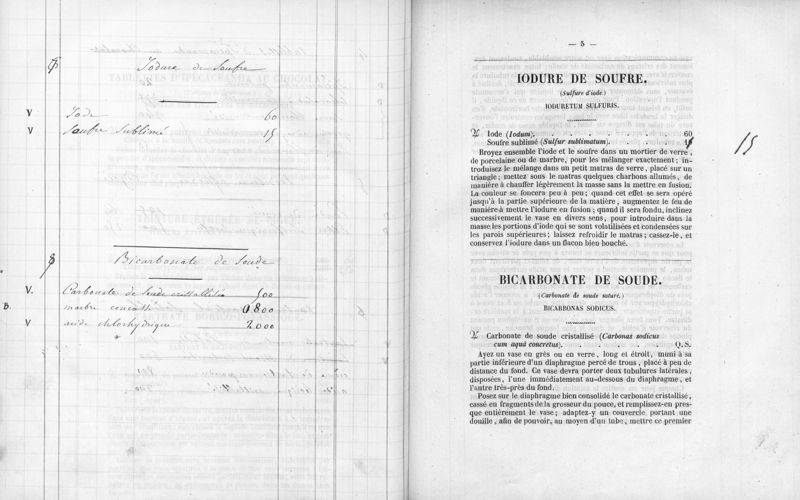 Iodure de Soufre
V Iode 60
V Soufre sublimé 15
Bicarbonate de Soude
V. Carbonate de Soude cristallisée 500
B. marbre concassé 0800
V acide chlorhydrique 2000
— 5 —
IODURE DE SOUFRE.
(Sulfure d'iode.)
IODURETUM SULFURIS.
♃ Iode (Iodum). . . . . . . . 60
Soufre sublimé (Sulfur sublimatum). . . . . 15
15
Broyez ensemble l'iode et le soufre dans un mortier de verre,
de porcelaine ou de marbre, pour les mélanger exactement; in-
troduisez le mélange dans un petit matras de verre, placé sur un
triangle; mettez sous le matras quelques charbons allumés, de
manière à chauffer légèrement la masse sans la mettre en fusion.
La couleur se foncera peu à peu; quand cet effet se sera opéré
jusqu'à la partie supérieure de la matière, augmentez le feu de
manière à mettre l'iodure en fusion; quand il sera fondu, inclinez
successivement le vase en divers sens, pour introduire dans la
masse les portions d'iode qui se sont volatilisées et condensées sur
les parois supérieures; laissez refroidir le matras; cassez-le, et
conservez l'iodure dans un flacon bien bouché.
BICARBONATE DE SOUDE.
(Carbonate de soude saturé.)
BICARBONAS SODICUS.
♃ Carbonate de soude cristallisé (Carbonas sodicus
cum aquâ concretus). . . . . . . Q. S.
Ayez un vase en grès ou en verre, long et étroit, muni à sa
partie inférieure d'un diaphragme percé de trous, placé à peu de
distance du fond. Ce vase devra porter deux tubulures latérales,
disposées, l'une immédiatement au-dessous du diaphragme, et
l'autre très-près du fond.
Posez sur le diaphragme bien consolidé le carbonate cristallisé,
cassé en fragments de la grosseur du pouce, et remplissez-en pres-
que entièrement le vase; adaptez-y un couvercle portant une
douille, afin de pouvoir, au moyen d'un tube, mettre ce premier